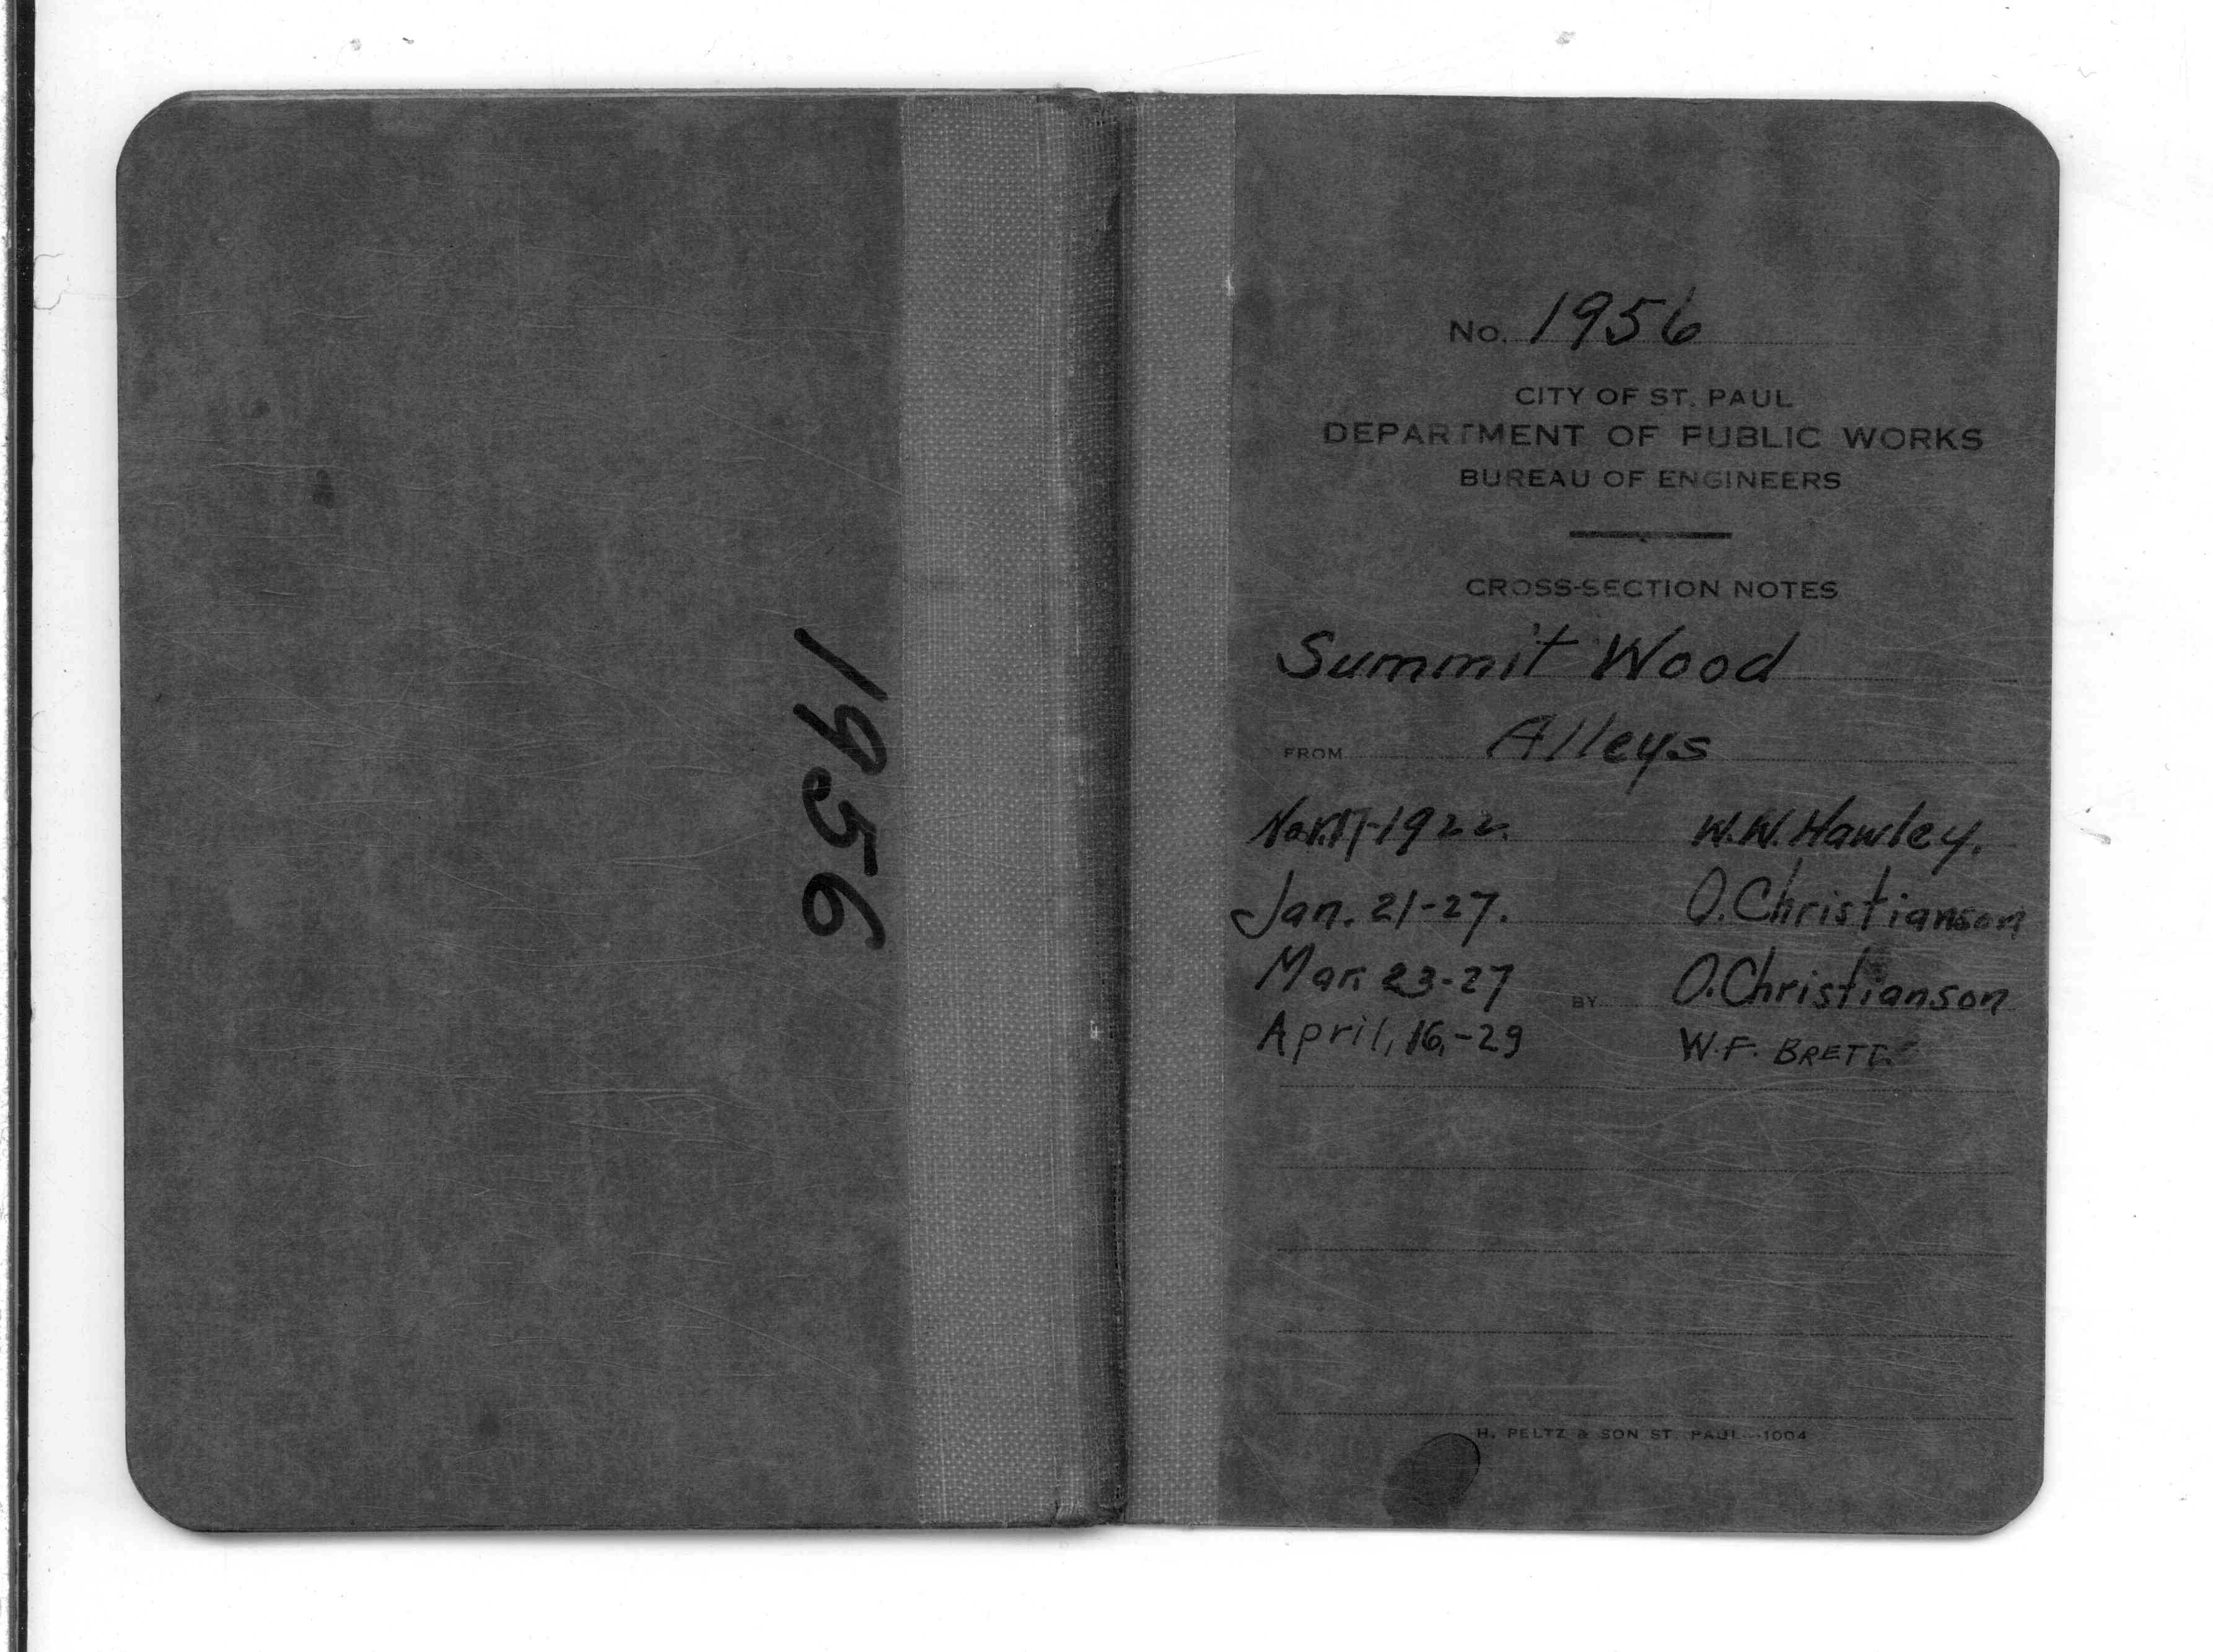 1956
No. 1956
CITY OF ST. PAUL
DEPARTMENT OF PUBLIC WORKS
BUREAU OF ENGINEERS
CROSS-SECTION NOTES
Summit Wood
FROM Alleys
1922. W.W. Hawley.
Jan. 21-27. O. Christianson
Mar. 23-27 BY O. Christianson
April, 16,-29 W.F. BRETT.
H. PELTZ & SON ST. PAUL-1004